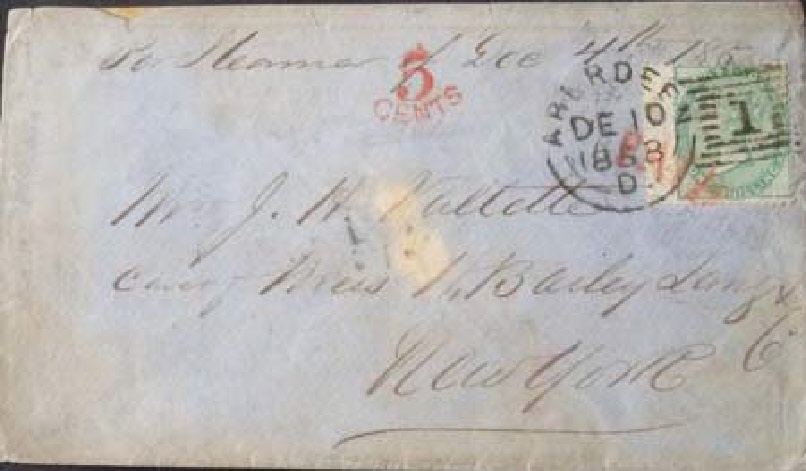 Per Steamer of Dec
3
CENTS
ABERDEEN
DE 10
1858
D
1
Mr. J. H.
care Mess
Bailey Lang &
Co
New York